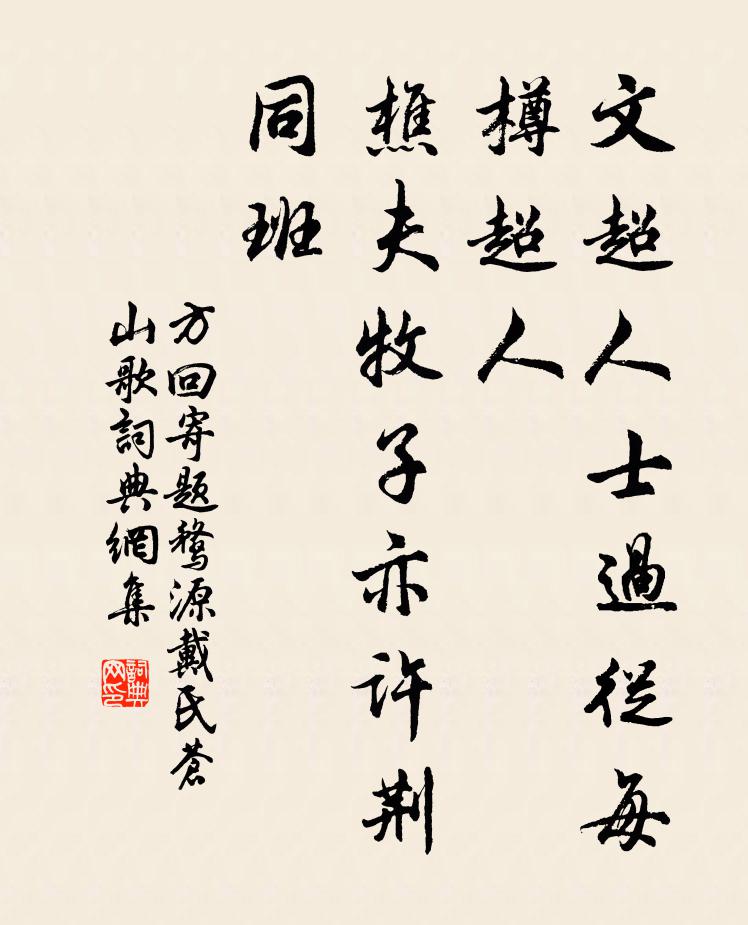 文超人士過從每
樽超人
樵夫牧子亦許荆
同班
方回寄題婺源戴氏蒼
山歌詞典網集
詞典网印